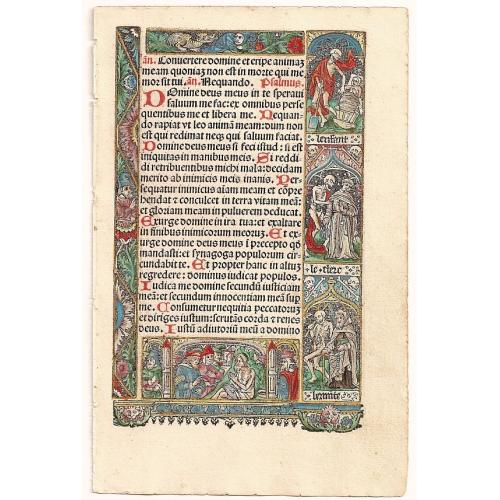 añ. Conuertere domine et eripe animaʒ
meam quoniaʒ non est in morte qui me
mor sit tui. añ. Nequando. Psalmus.
Domine deus meus in te speraui
saluum me fac: ex omnibus perse
quentibus me et libera me. Nequan
do rapiat vt leo animã meam: dum non
est qui redimat neqʒ qui saluum faciat.
Domine deus meus si feci istud: si est
iniquitas in manibus meis. Si reddi
di retribuentibus michi mala: decidam
merito ab inimicis meis inanis. Per-
sequatur inimicus aĩam meam et cõpre
hendat et conculcet in terra vitam meã:
et gloriam meam in puluerem deducat.
Exurge domine in ira tua: et exaltare
in finibus inimicorum meoruʒ. Et ex-
urge domine deus meus ĩ precepto qd̃
mandasti: et synagoga populorum cir-
cundabit te. Et propter hanc in altuʒ
regredere: dominus iudicat populos.
Iudica me domine secundũ iusticiam
meã: et secundum innocentiam meã sup
me. Consumetur nequitia peccatoruʒ
et diriges iustum: scrutãs corda & renes
deus. Iustũ adiutoriũ meũ a domino
lenfant
le clerc
lermite